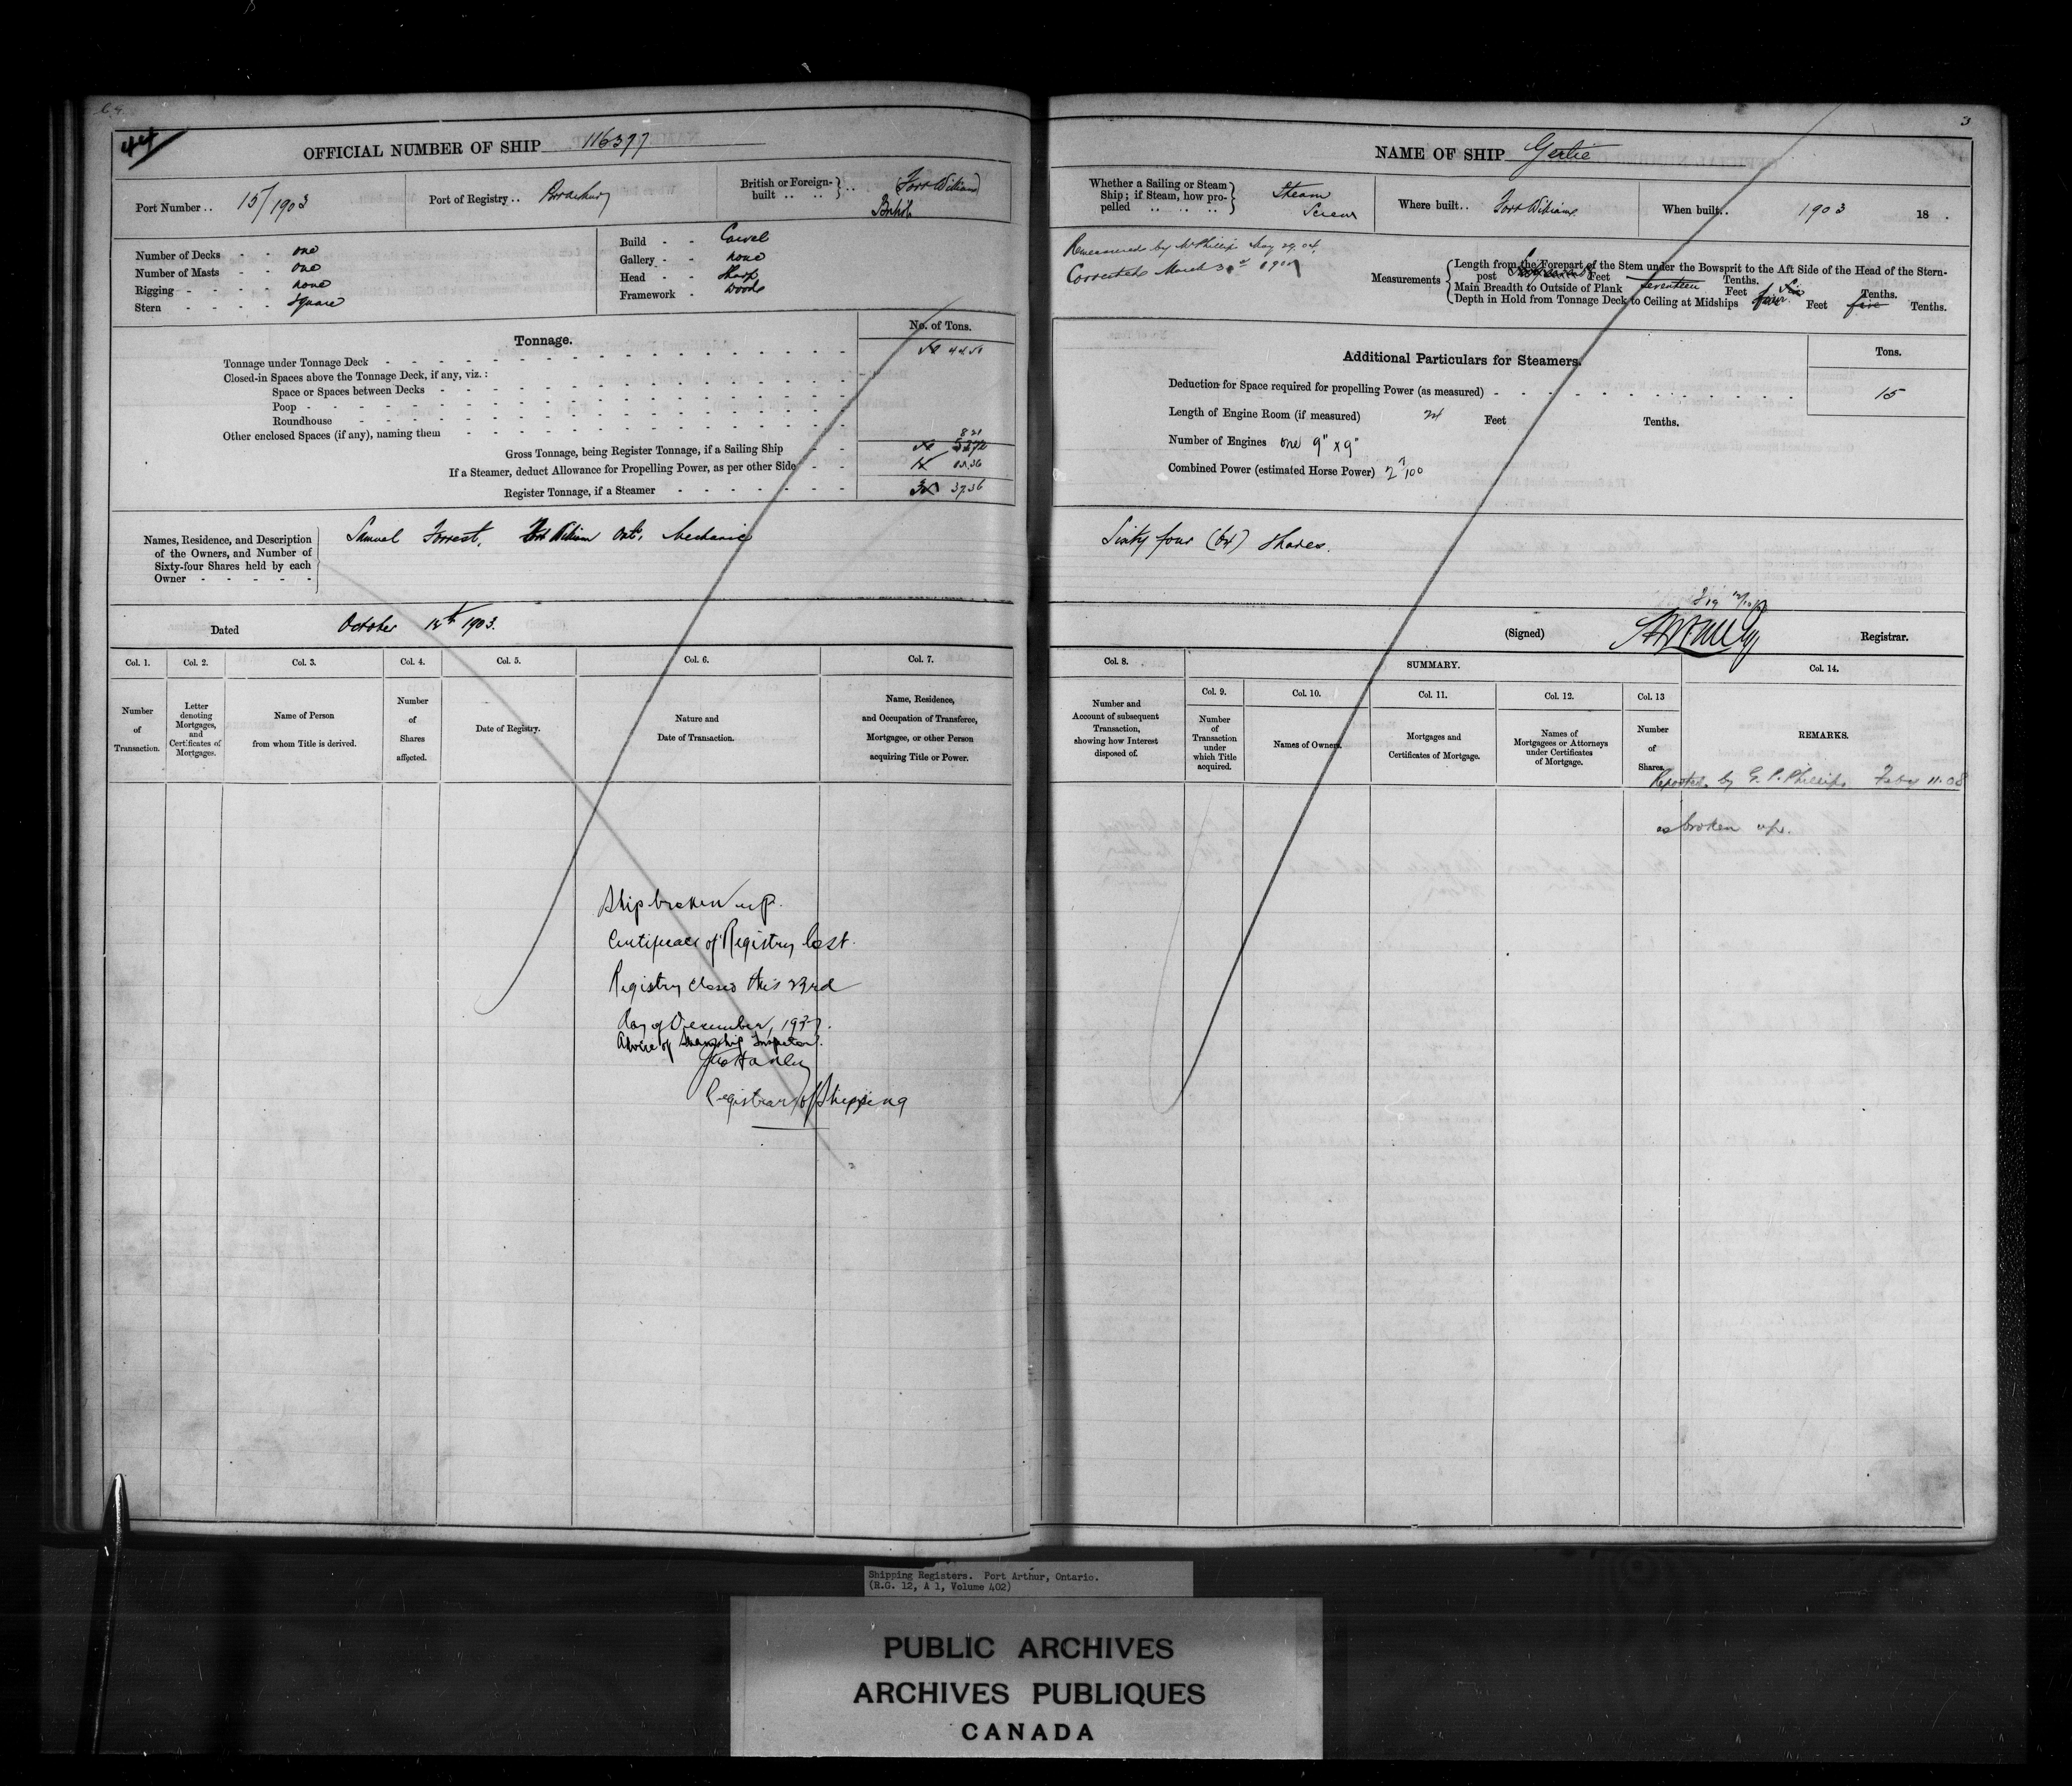 44
OFFICIAL NUMBER OF SHIP 116377
Port Number .. 15/1903
Port of Registry ..
British or Foreign-built .. .. (Fort William) British
Number of Decks - - one
Number of Masts - - one
Rigging - - - - none
Stern - - - - Square
Build - - Carvel
Gallery - - none
Head - - Sharp
Framework - Wood
Tonnage.
No. of Tons.
Tonnage under Tonnage Deck
Closed-in Spaces above the Tonnage Deck, if any, viz.:
Space or Spaces between Decks
Poop
Roundhouse
Other enclosed Spaces (if any), naming them
8 21
Gross Tonnage, being Register Tonnage, if a Sailing Ship
If a Steamer, deduct Allowance for Propelling Power, as per other Side
Register Tonnage, if a Steamer 37.36
Names, Residence, and Description of the Owners, and Number of Sixty-four Shares held by each Owner
Samuel Forrest, Fort William Ont, Mechanic
Dated October 15th 1903.
Col. 1. Col. 2. Col. 3. Col. 4. Col. 5. Col. 6. Col. 7.
Number of Transaction.
Letter denoting Mortgages, and Certificates of Mortgages.
Name of Person from whom Title is derived.
Number of Shares affected.
Date of Registry.
Nature and Date of Transaction.
Name, Residence, and Occupation of Transferee, Mortgagee, or other Person acquiring Title or Power.
Ship broken up.
Certificate of Registry lost.
Registry closed this 23rd
Day of December, 1937.
Advice of Steamship Inspector.
Registrar of Shipping
3
NAME OF SHIP Gertie
Whether a Sailing or Steam Ship; if Steam, how propelled .. .. .. Steam Screw
Where built.. Fort William
When built.. 1903 18 .
Remeasured by McPhillips May 29.04.
Corrected March
Measurements
Length from the Forepart of the Stem under the Bowsprit to the Aft Side of the Head of the Stern-
post Feet Tenths.
Main Breadth to Outside of Plank seventeen Feet five Tenths.
Depth in Hold from Tonnage Deck to Ceiling at Midships four Feet five Tenths.
Additional Particulars for Steamers.
Tons.
Deduction for Space required for propelling Power (as measured) 15
Length of Engine Room (if measured) 24 Feet Tenths.
Number of Engines one 9" x 9"
Combined Power (estimated Horse Power)
Sixty four (64) Shares.
(Signed) Registrar.
Col. 8.
SUMMARY.
Col. 9. Col. 10. Col. 11. Col. 12. Col. 13 Col. 14.
Number and Account of subsequent Transaction, showing how Interest disposed of.
Number of Transaction under which Title acquired.
Names of Owners.
Mortgages and Certificates of Mortgage.
Names of Mortgagees or Attorneys under Certificates of Mortgage.
Number of Shares.
REMARKS.
Reported by G. P. Phillips Feby 11.08
as broken up.
Shipping Registers. Port Arthur, Ontario.
(R.G. 12, A 1, Volume 402)
PUBLIC ARCHIVES
ARCHIVES PUBLIQUES
CANADA